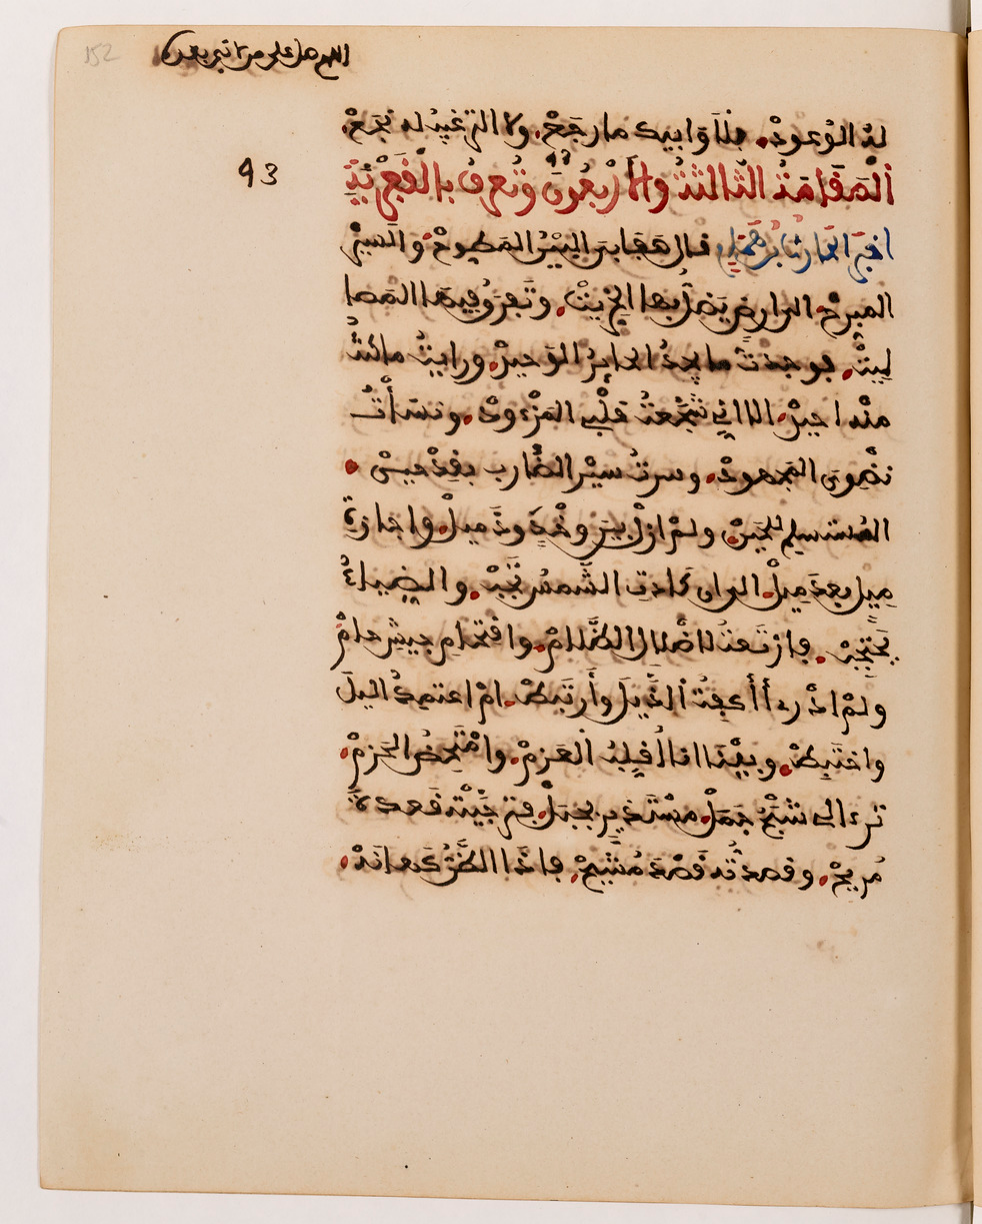 152
اللهم صل على من لا نبي بعده
لهُ الوُعودْ. فلا وابيك ما رجَعْ. ولا الترغيبُ له نجَعْ.
43
المَقَامَةُ الثَّالثةُ والأَرْبعُونَ وتُعرفُ بالْفَجْ
43
اخبَرَ الحارثُ بنُ همَّامٍ قال هَفَا بيَ البيْنُ المطوحْ. والسيرُ
المبرحْ. الى ارضٍ يَضلُّ بها الخِرِّيتْ. وتَفرَقُ فيها المصا
ليتْ. فوجدْتُ ما يجدُ الحايِرُ الوَحيدْ. ورايْتُ ما كنتُ
منْه احيدْ. الا اني شَجَّعْتُ قلْبِي المَزْءودْ. ونسَأْتُ
نضْوي المجهودْ. وسرتُ سيْرَ الضَّارب بقدْحيينْ.
المُستسلم للحَيْنْ. ولمْ ازلْ بيْنَ وخْدٍ وذَميلْ. واجازةِ
مِيلٍ بعدَ مِيلْ. الى ان كادتِ الشَّمسُ تَجِبْ. والضِّياءُ
يَحْتَجِبْ. فارْتَعتُ لاظْلالِ الظَّلامْ. واقتحامِ جيشِ حامْ
ولمْ ادْرِ أأكفِتُ الذَّيلَ وأَرتَبطْ. امْ اعتمِدُ الليلَ
واختَبِطْ. وبيْنَا انا اُقلِّبُ العَزمْ. وامْتَخِضُ الحَزمْ.
تراءى لي شبَحُ جَمَلْ. مسْتَذرٍ بجبَلْ. فترَجَّيْتُه قُعدةَ
مُريحْ. وقصدْتُه قَصْدَ مُشيحْ. فاذا الظَّنُّ كهانَهْ.